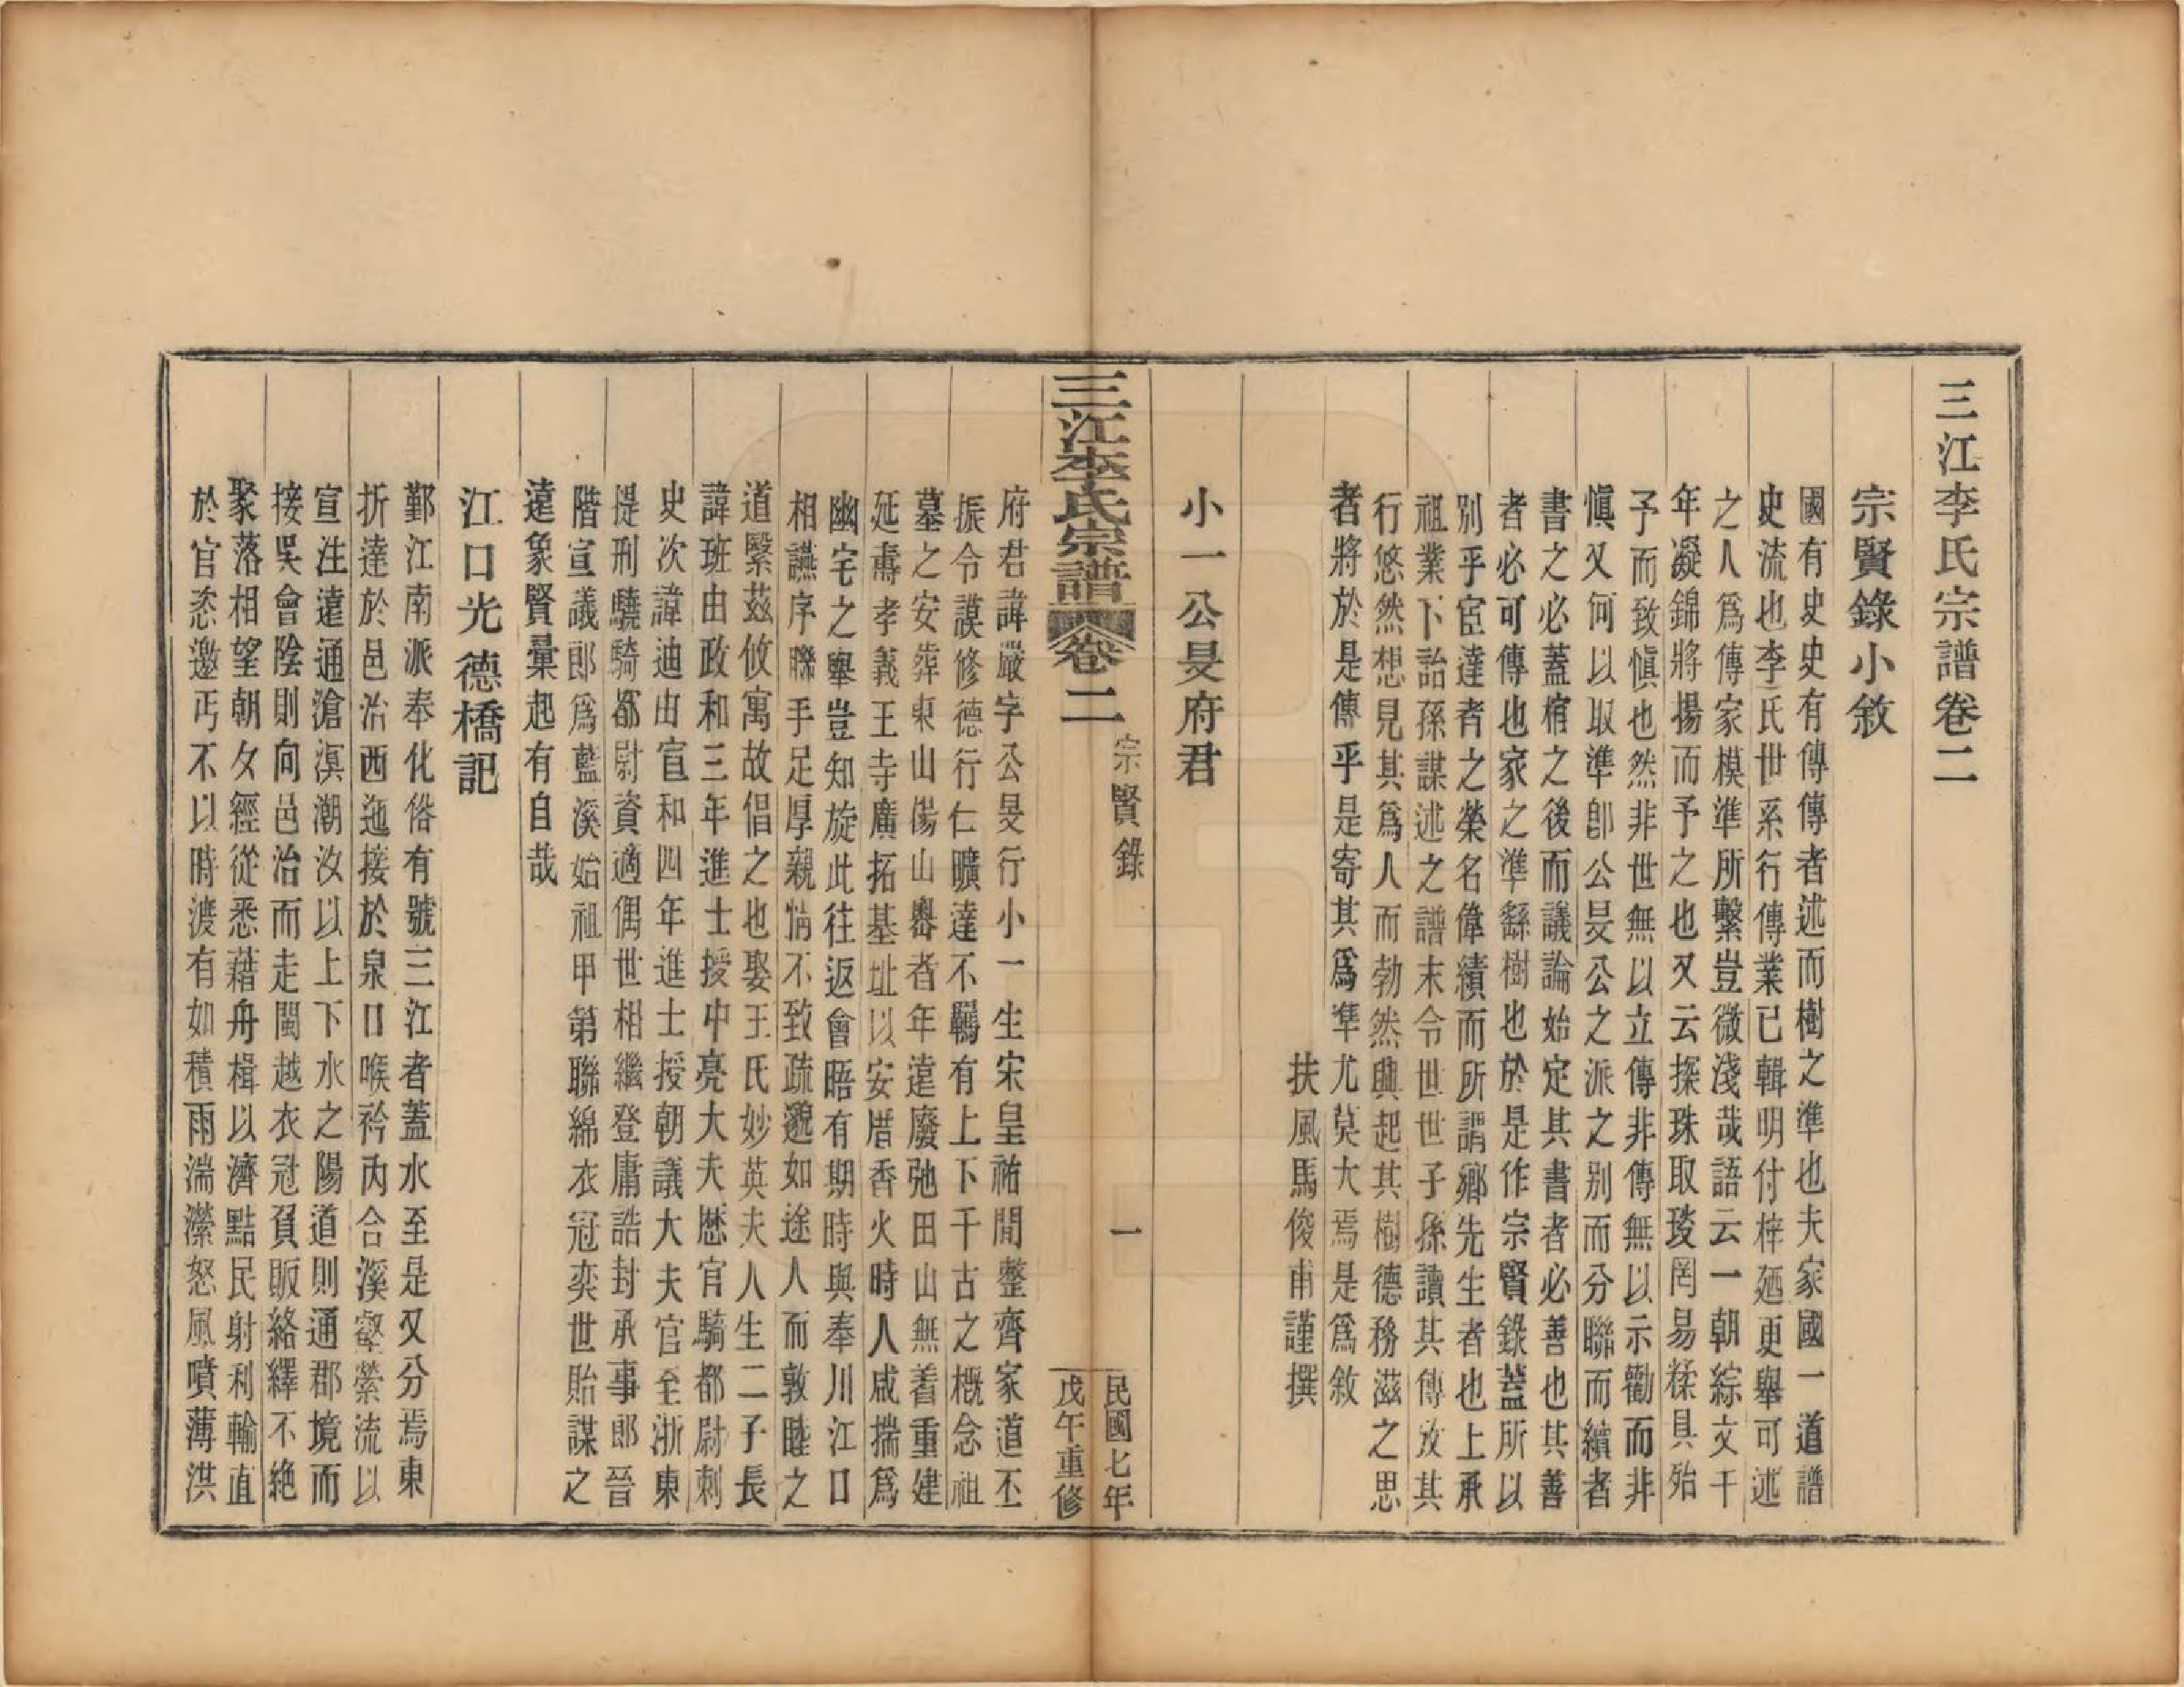 三江李氏宗譜卷二
宗賢錄小敘
國有史史有傳傳者述而樹之準也夫家國一道譜
史流也李氏世系行傳業已輯明付梓廼更舉可述
之人爲傳家模準所繫豈微淺哉語云一朝綜文千
年凝錦將揚而予之也又云探珠取琰罔易糅具殆
予而致愼也然非世無以立傳非傳無以示勸而非
愼又何以取準卽公旻公之派之別而分聯而續者
書之必蓋棺之後而議論始定其書者必善也其善
者必可傳也家之準繇樹也於是作宗賢錄蓋所以
別乎宦達者之榮名偉績而所謂鄉先生者也上承
祖業下詒孫謀述之譜末令世世子孫讀其傳攷其
行悠然想見其爲人而勃然興起其樹德務滋之思
者將於是傳乎是寄其爲準尤莫大焉是爲敘
扶風馬俊甫謹撰
小一公旻府君
三江李氏宗譜
卷二
宗賢錄
一
民國七年
戊午重修
府君諱嚴字公旻行小一生宋皇祐間整齊家道丕
振令謨修德行仁曠達不羈有上下千古之概念祖
墓之安葬東山儒山山嶴者年遠廢弛田山無着重建
延壽孝義王寺廣拓基址以安厝香火時人咸揣爲
幽宅之舉豈知旋此往返會晤有期時與奉川江口
相讌序聯手足厚親情不致疏邈如途人而敦睦之
道繄茲攸寓故倡之也娶王氏妙英夫人生二子長
諱班由政和三年進士授中亮大夫歷官騎都尉刺
史次諱迪由宣和四年進士授朝議大夫官至浙東
提刑驍騎都尉資適偶世相繼登庸誥封承事郎晉
階宣議郎爲藍溪始祖甲第聯綿衣冠奕世貽謀之
遠象賢彙起有自哉
江口光德橋記
鄞江南派奉化俗有號三江者蓋水至是又分焉東
折達於邑治西迤接於泉口喉衿丙合溪壑縈流以
宣注遠通滄溟潮汝以上下水之陽道則通郡境而
接吳會陰則向邑治而走閩越衣冠負販絡繹不絶
聚落相望朝夕經從悉藉舟楫以濟點民射利輸直
於官恣邀丐不以時渡有如積雨湍瀠怒風噴薄洪